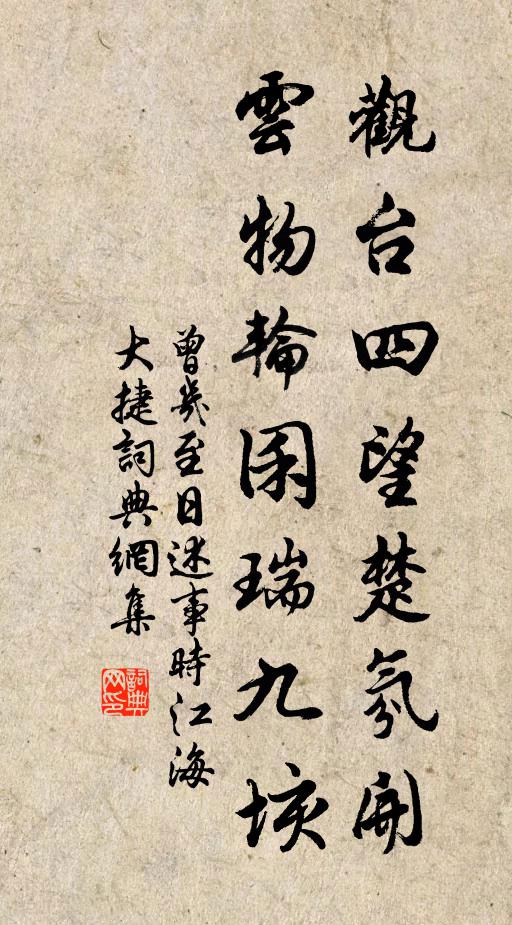 觀台四望楚氛開
雲物輪囷瑞九垓
曾幾至日述事時江海
大捷詞典網集
詞典网印